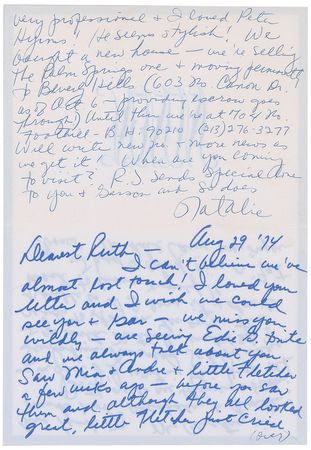 very professional & I loved Peter
Hyams! He seems stylish! We
bought a new house — we're selling
the Palm Springs one & moving permanently
to Beverly Hills (603 No. Canon Dr.
as of Oct 6 — providing escrow goes
through) Until then we're at 704 N.
Foothill - B.H. 90210 (213) 276-3277
Will write new no. & more news as
we get it! When are you coming
to visit? R.J. Sends Special love
to you & Garson and So does
Natalie
Dearest Ruth — Aug 29 '74
I can't believe we've
almost lost touch! I loved your
letter and I wish we could
see you & Gar — we miss you
wildly — are seeing Edie G. Quite
and we always talk about you.
Saw Mia & Andre & little Fletcher
a few weeks ago — before you saw
them and although they all looked
great, little Fletcher just cried
(over)